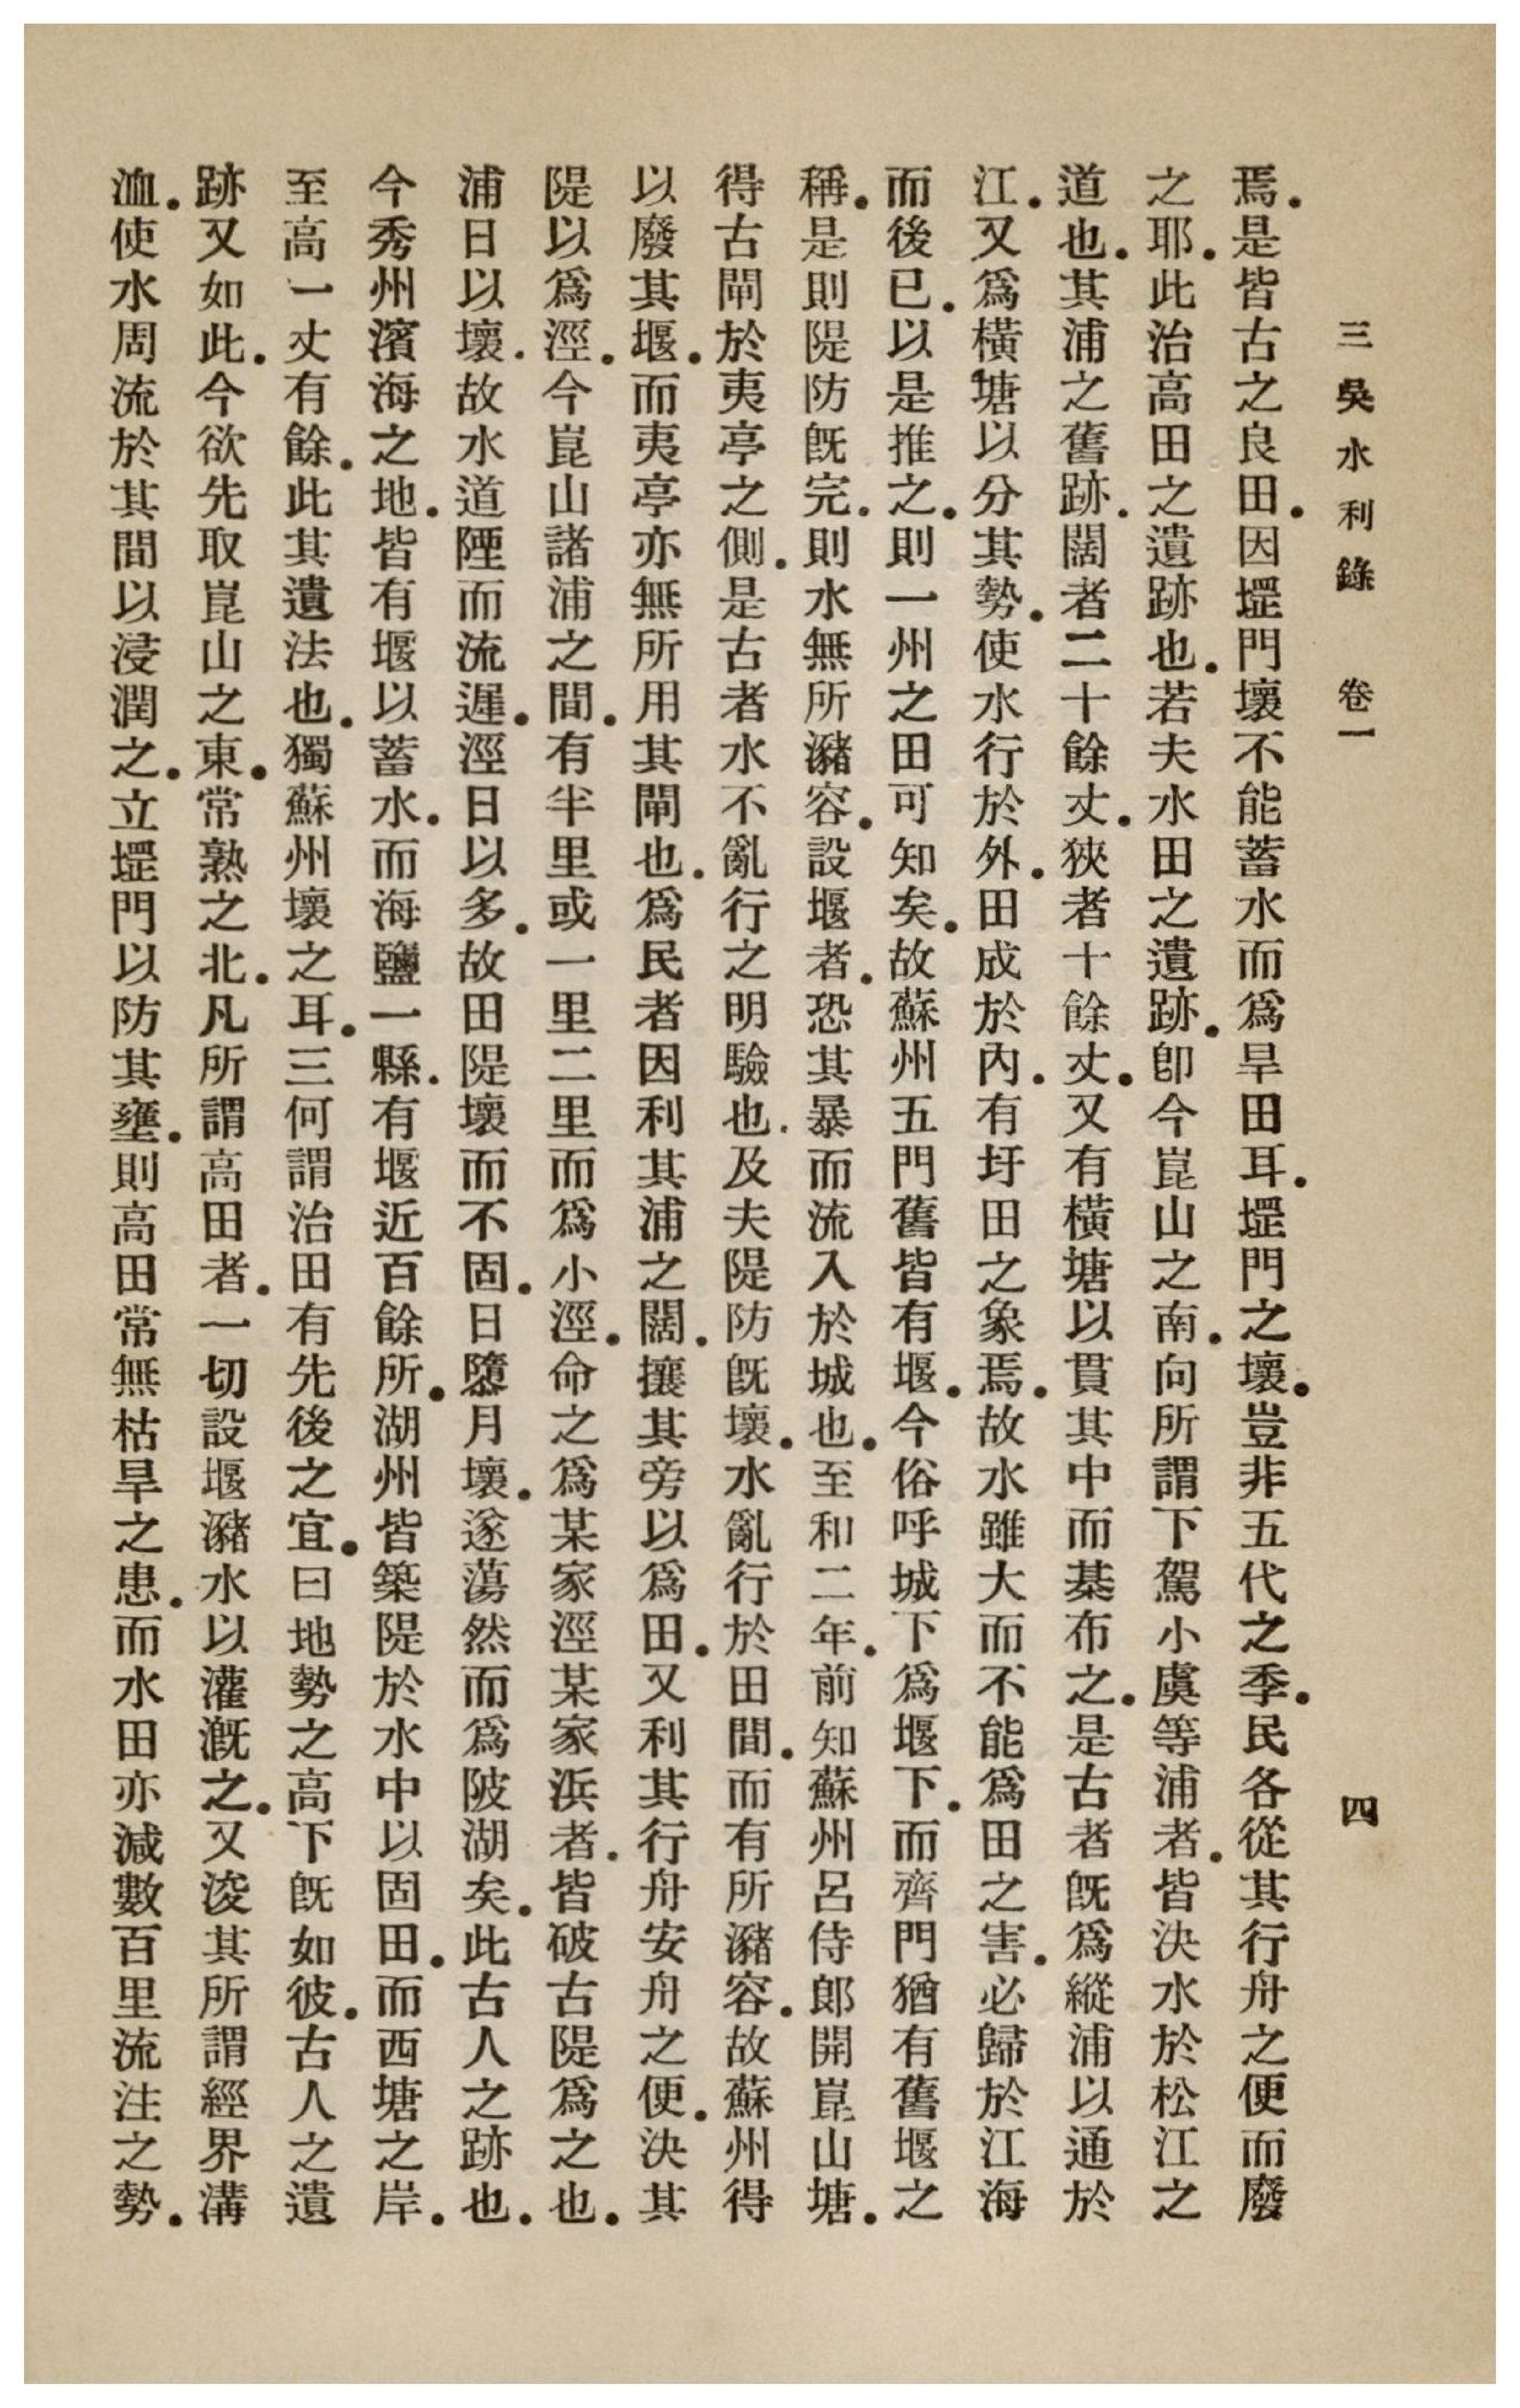 三吳水利錄 卷一 四
焉.是皆古之良田.因堽門壞不能蓄水而爲旱田耳.堽門之壞.豈非五代之季.民各從其行舟之便而廢
之耶.此治高田之遺跡也.若夫水田之遺跡.卽今崑山之南.向所謂下駕小虞等浦者.皆決水於松江之
道也.其浦之舊跡.闊者二十餘丈.狹者十餘丈.又有橫塘以貫其中而棊布之.是古者旣爲縱浦以通於
江.又爲橫塘以分其勢.使水行於外.田成於內.有圩田之象焉.故水雖大而不能爲田之害.必歸於江海
而後已.以是推之.則一州之田可知矣.故蘇州五門舊皆有堰.今俗呼城下爲堰下.而齊門猶有舊堰之
稱.是則隄防旣完.則水無所瀦容.設堰者.恐其暴而流入於城也.至和二年.前知蘇州呂侍郞開崑山塘.
得古閘於夷亭之側.是古者水不亂行之明驗也.及夫隄防旣壞.水亂行於田間.而有所瀦容.故蘇州得
以廢其堰.而夷亭亦無所用其閘也.爲民者因利其浦之闊.攘其旁以爲田.又利其行舟安舟之便.決其
隄以爲涇.今崑山諸浦之間.有半里或一里二里而爲小涇.命之爲某家涇某家浜者.皆破古隄爲之也.
浦日以壞.故水道陻而流遲.涇日以多.故田隄壞而不固.日隳月壞.遂蕩然而爲陂湖矣.此古人之跡也.
今秀州濱海之地.皆有堰以蓄水.而海鹽一縣.有堰近百餘所.湖州皆築隄於水中以固田.而西塘之岸.
至高一丈有餘.此其遺法也.獨蘇州壞之耳.三何謂治田有先後之宜.曰地勢之高下旣如彼.古人之遺
跡又如此.今欲先取崑山之東.常熟之北.凡所謂高田者.一切設堰瀦水以灌漑之.又浚其所謂經界溝
洫.使水周流於其間以浸潤之.立堽門以防其壅.則高田常無枯旱之患.而水田亦減數百里流注之勢.